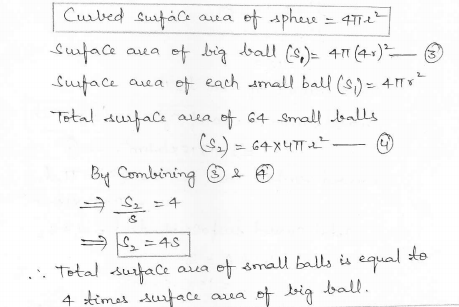 Curbed surface area of sphere = 4πr²
Surface area of big ball (S₁) = 4π(4r)² — ③
Surface area of each small ball (S₁) = 4πr²
Total surface area of 64 small balls
(S₂) = 64×4πr² — ④
By Combining ③ & ④
⇒ S₂/S = 4
⇒ S₂ = 4S
∴ Total surface area of small balls is equal to
4 times surface area of big ball.